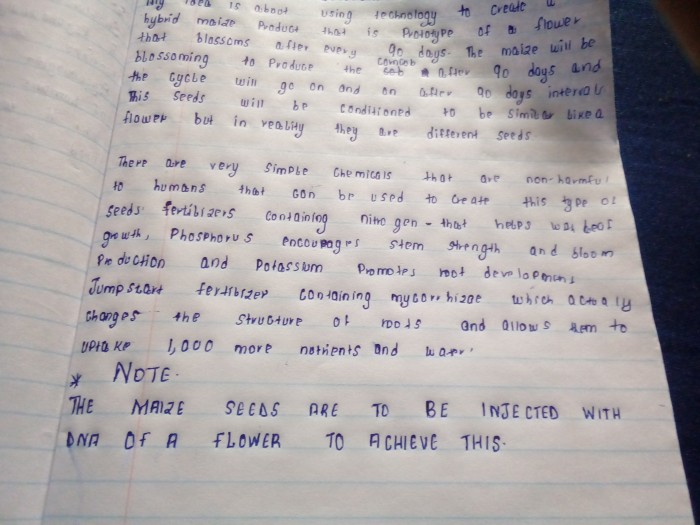 My idea is about using technology to create a
hybrid maize product that is prototype of a flower
that blossoms after every 90 days. The maize will be
blossoming to produce the comcob after 90 days and
the cycle will go on and on after 90 days interval
This seeds will be conditioned to be similar like a
flower but in reality they are different seeds
There are very simple chemicals that are non-harmful
to humans that can be used to create this type of
seeds fertilizers containing nitrogen - that helps
growth, Phosphorus encourages stem strength and bloom
Production and Potassium Promotes root
Jumpstart fertilizer containing mycorrhizae which actually
changes the structure of roots and allows them to
uptake 1,000 more nutrients and water.
* NOTE.
THE MAIZE SEEDS ARE TO BE INJECTED WITH
DNA OF A FLOWER TO ACHIEVE THIS.